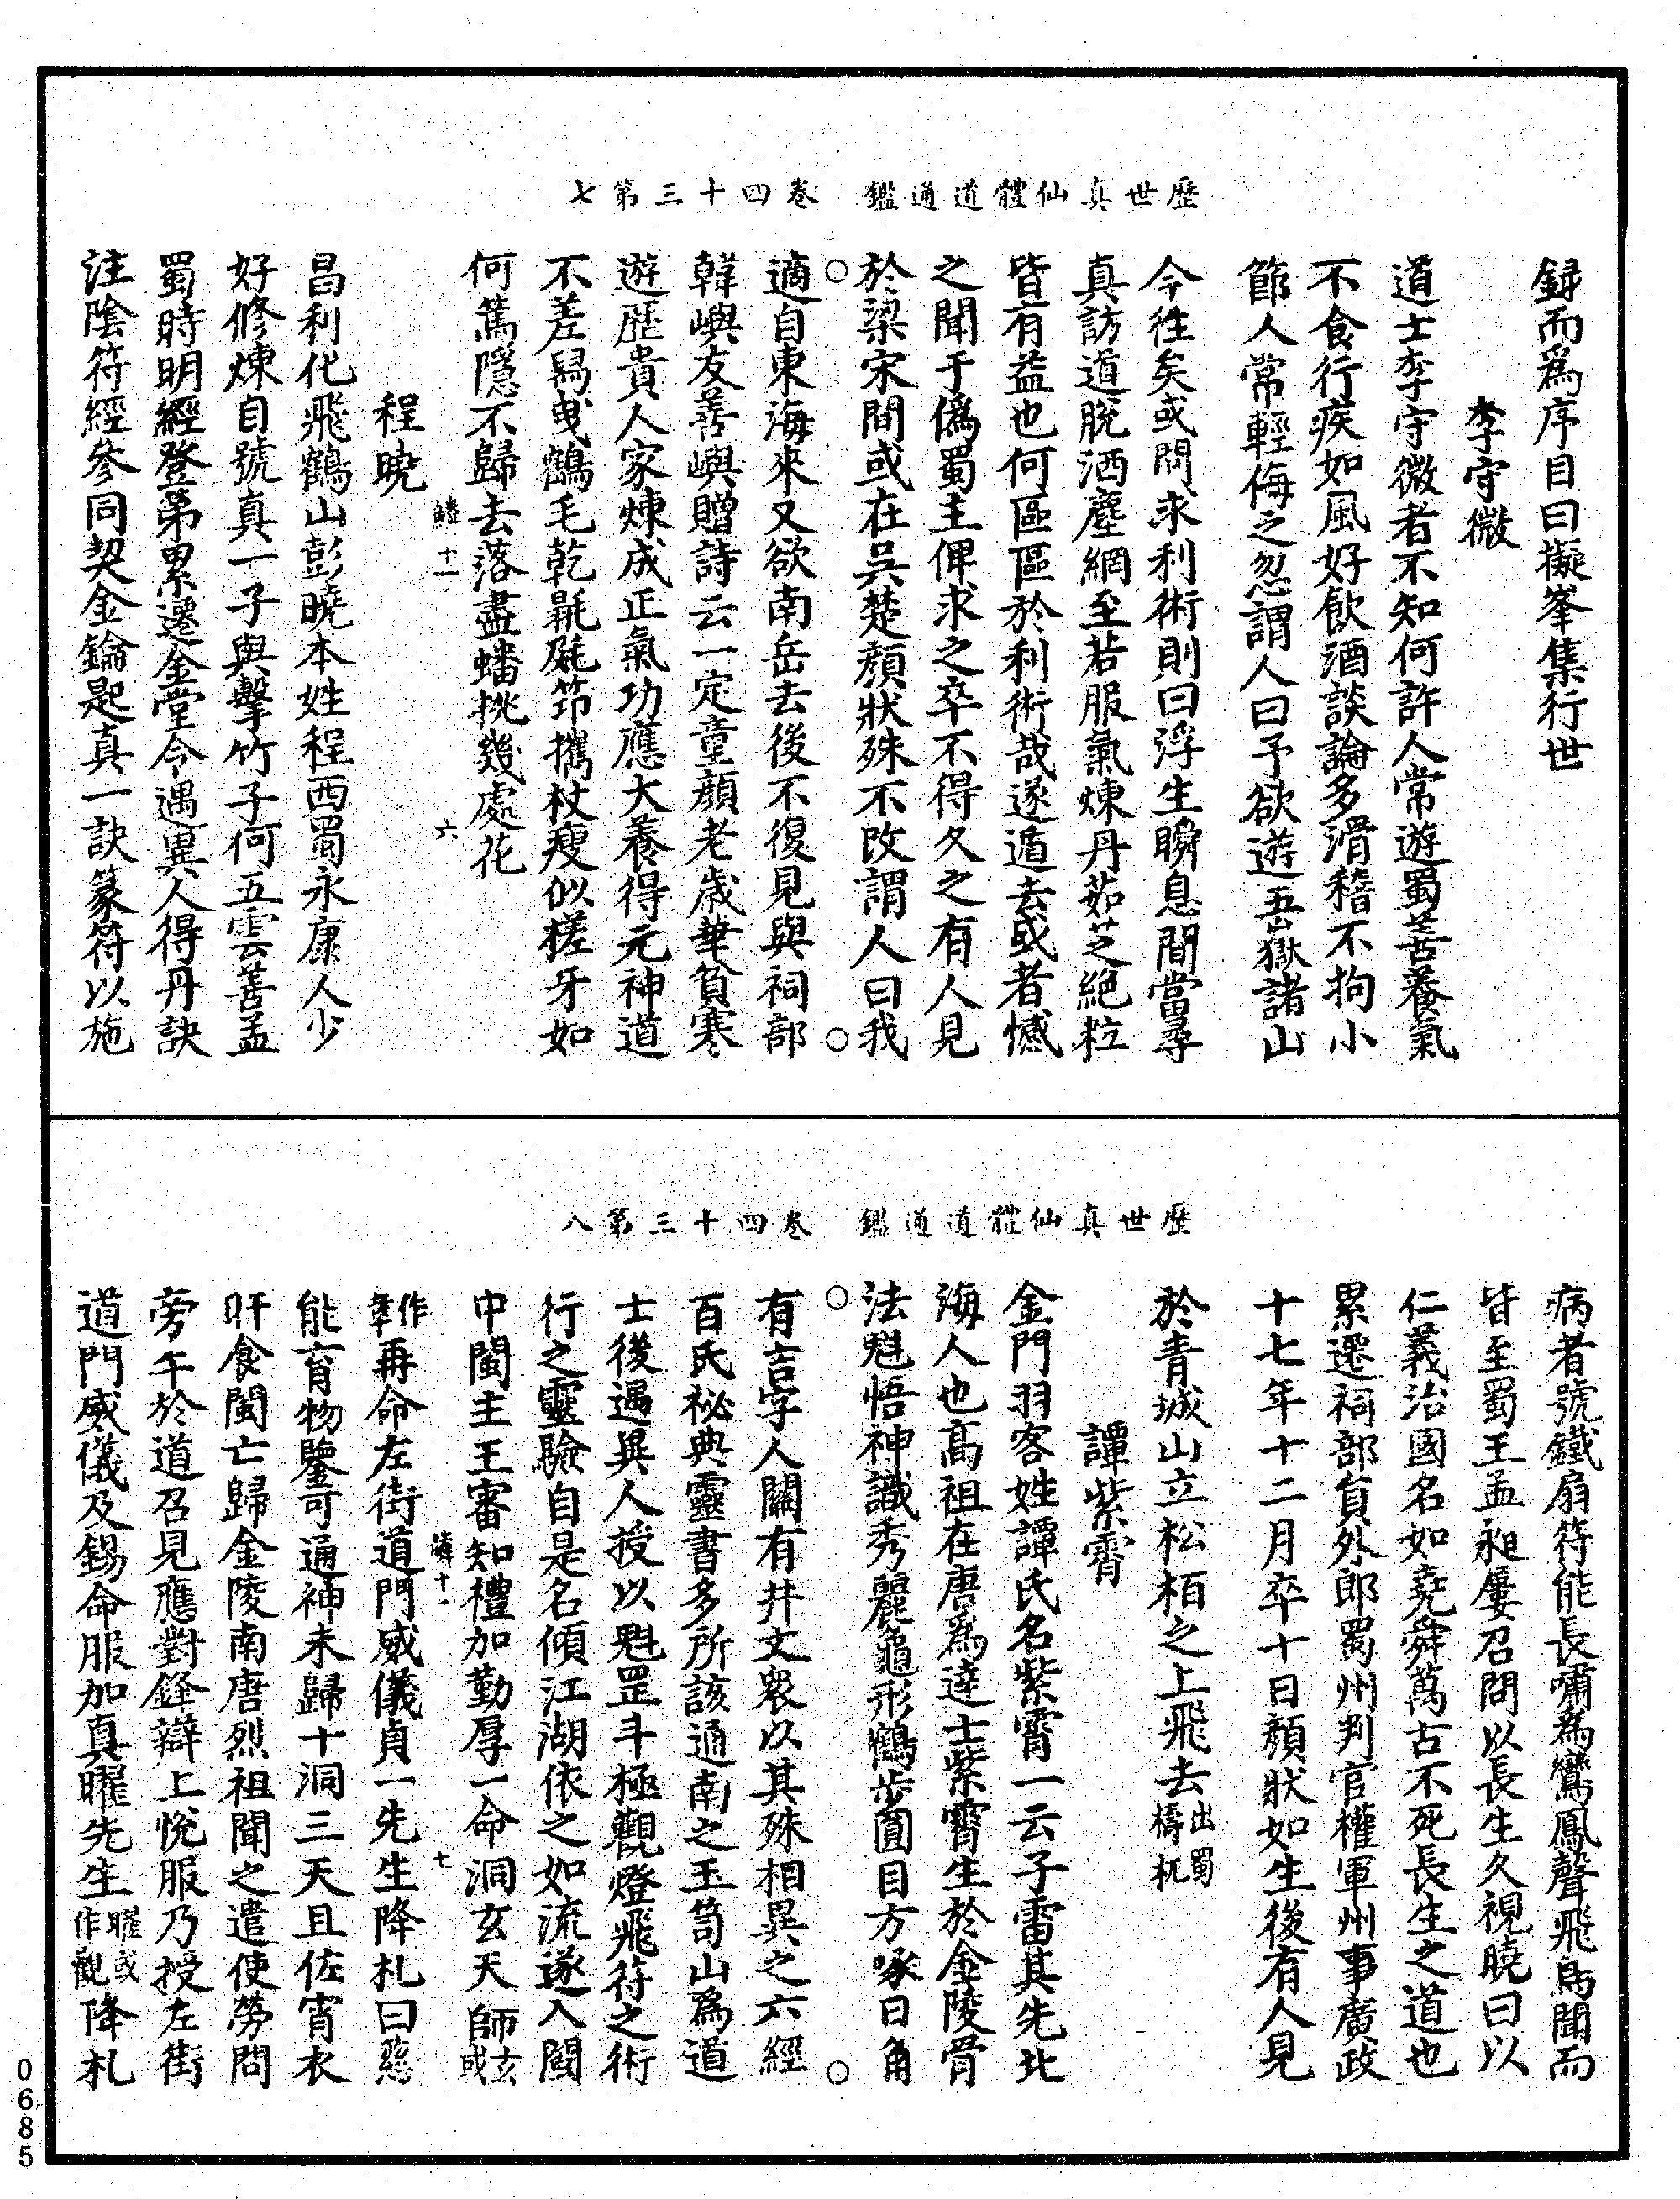 歷世真仙體道通鑑　卷四十三第七
録而爲序目曰擬峯集行世
李守微
道士李守微者不知何許人常遊蜀善養氣
不食行疾如風好飲酒談論多滑稽不拘小
節人常輕侮之忽謂人曰予欲遊五嶽諸山
今往矣或問求利術則曰浮生瞬息間當尋
真訪道脫洒塵網至若服氣煉丹茹芝絕粒
皆有益也何區區於利術哉遂遁去或者憾
之聞于僞蜀主俾求之卒不得久之有人見
於梁宋間或在吳楚顏狀殊不改謂人曰我
適自東海來又欲南岳去後不復見與祠部
韓嶼友善嶼贈詩云一定童顏老歲華貧寒
遊歷貴人家煉成正氣功應大養得元神道
不差舄曳鶴毛乾毾㲪笻攜杖瘦似槎牙如
何篤隱不歸去落盡蟠桃幾處花
鱗十一　六
程曉
昌利化飛鶴山彭曉本姓程西蜀永康人少
好修煉自號真一子與擊竹子何五雲善孟
蜀時明經登第累遷金堂令遇異人得丹訣
注陰符經參同契金鑰匙真一訣篆符以施
歷世真仙體道通鑑　卷四十三第八
病者號鐵扇符能長嘯爲鸞鳳聲飛鳥聞而
皆至蜀王孟昶屢召問以長生久視曉曰以
仁義治國名如堯舜萬古不死長生之道也
累遷祠部員外郎蜀州判官權軍州事廣政
十七年十二月卒十日顏狀如生後有人見
於青城山立松栢之上飛去出蜀檮杌
譚紫霄
金門羽客姓譚氏名紫霄一云子雷其先北
海人也高祖在唐爲達士紫霄生於金陵骨
法魁悟神識秀麗龜形鶴步圓目方啄日角
有吉字人闕有井文衆以其殊相異之六經
百氏祕典靈書多所該通南之玉笥山爲道
士後遇異人授以魁罡斗極觀燈飛符之術
行之靈驗自是名傾江湖依之如流遂入閩
中閩主王審知禮加勤厚一命洞玄天師玄或
作章再命左街道門威儀貞一先生降札曰慈
鱗十一　七
能育物鑒可通神未歸十洞三天且佐宵衣
旰食閩亡歸金陵南唐烈祖聞之遣使勞問
旁午於道召見應對鋒辯上悅服乃授左街
道門威儀及錫命服加真曜先生曜或作觀降札
0685